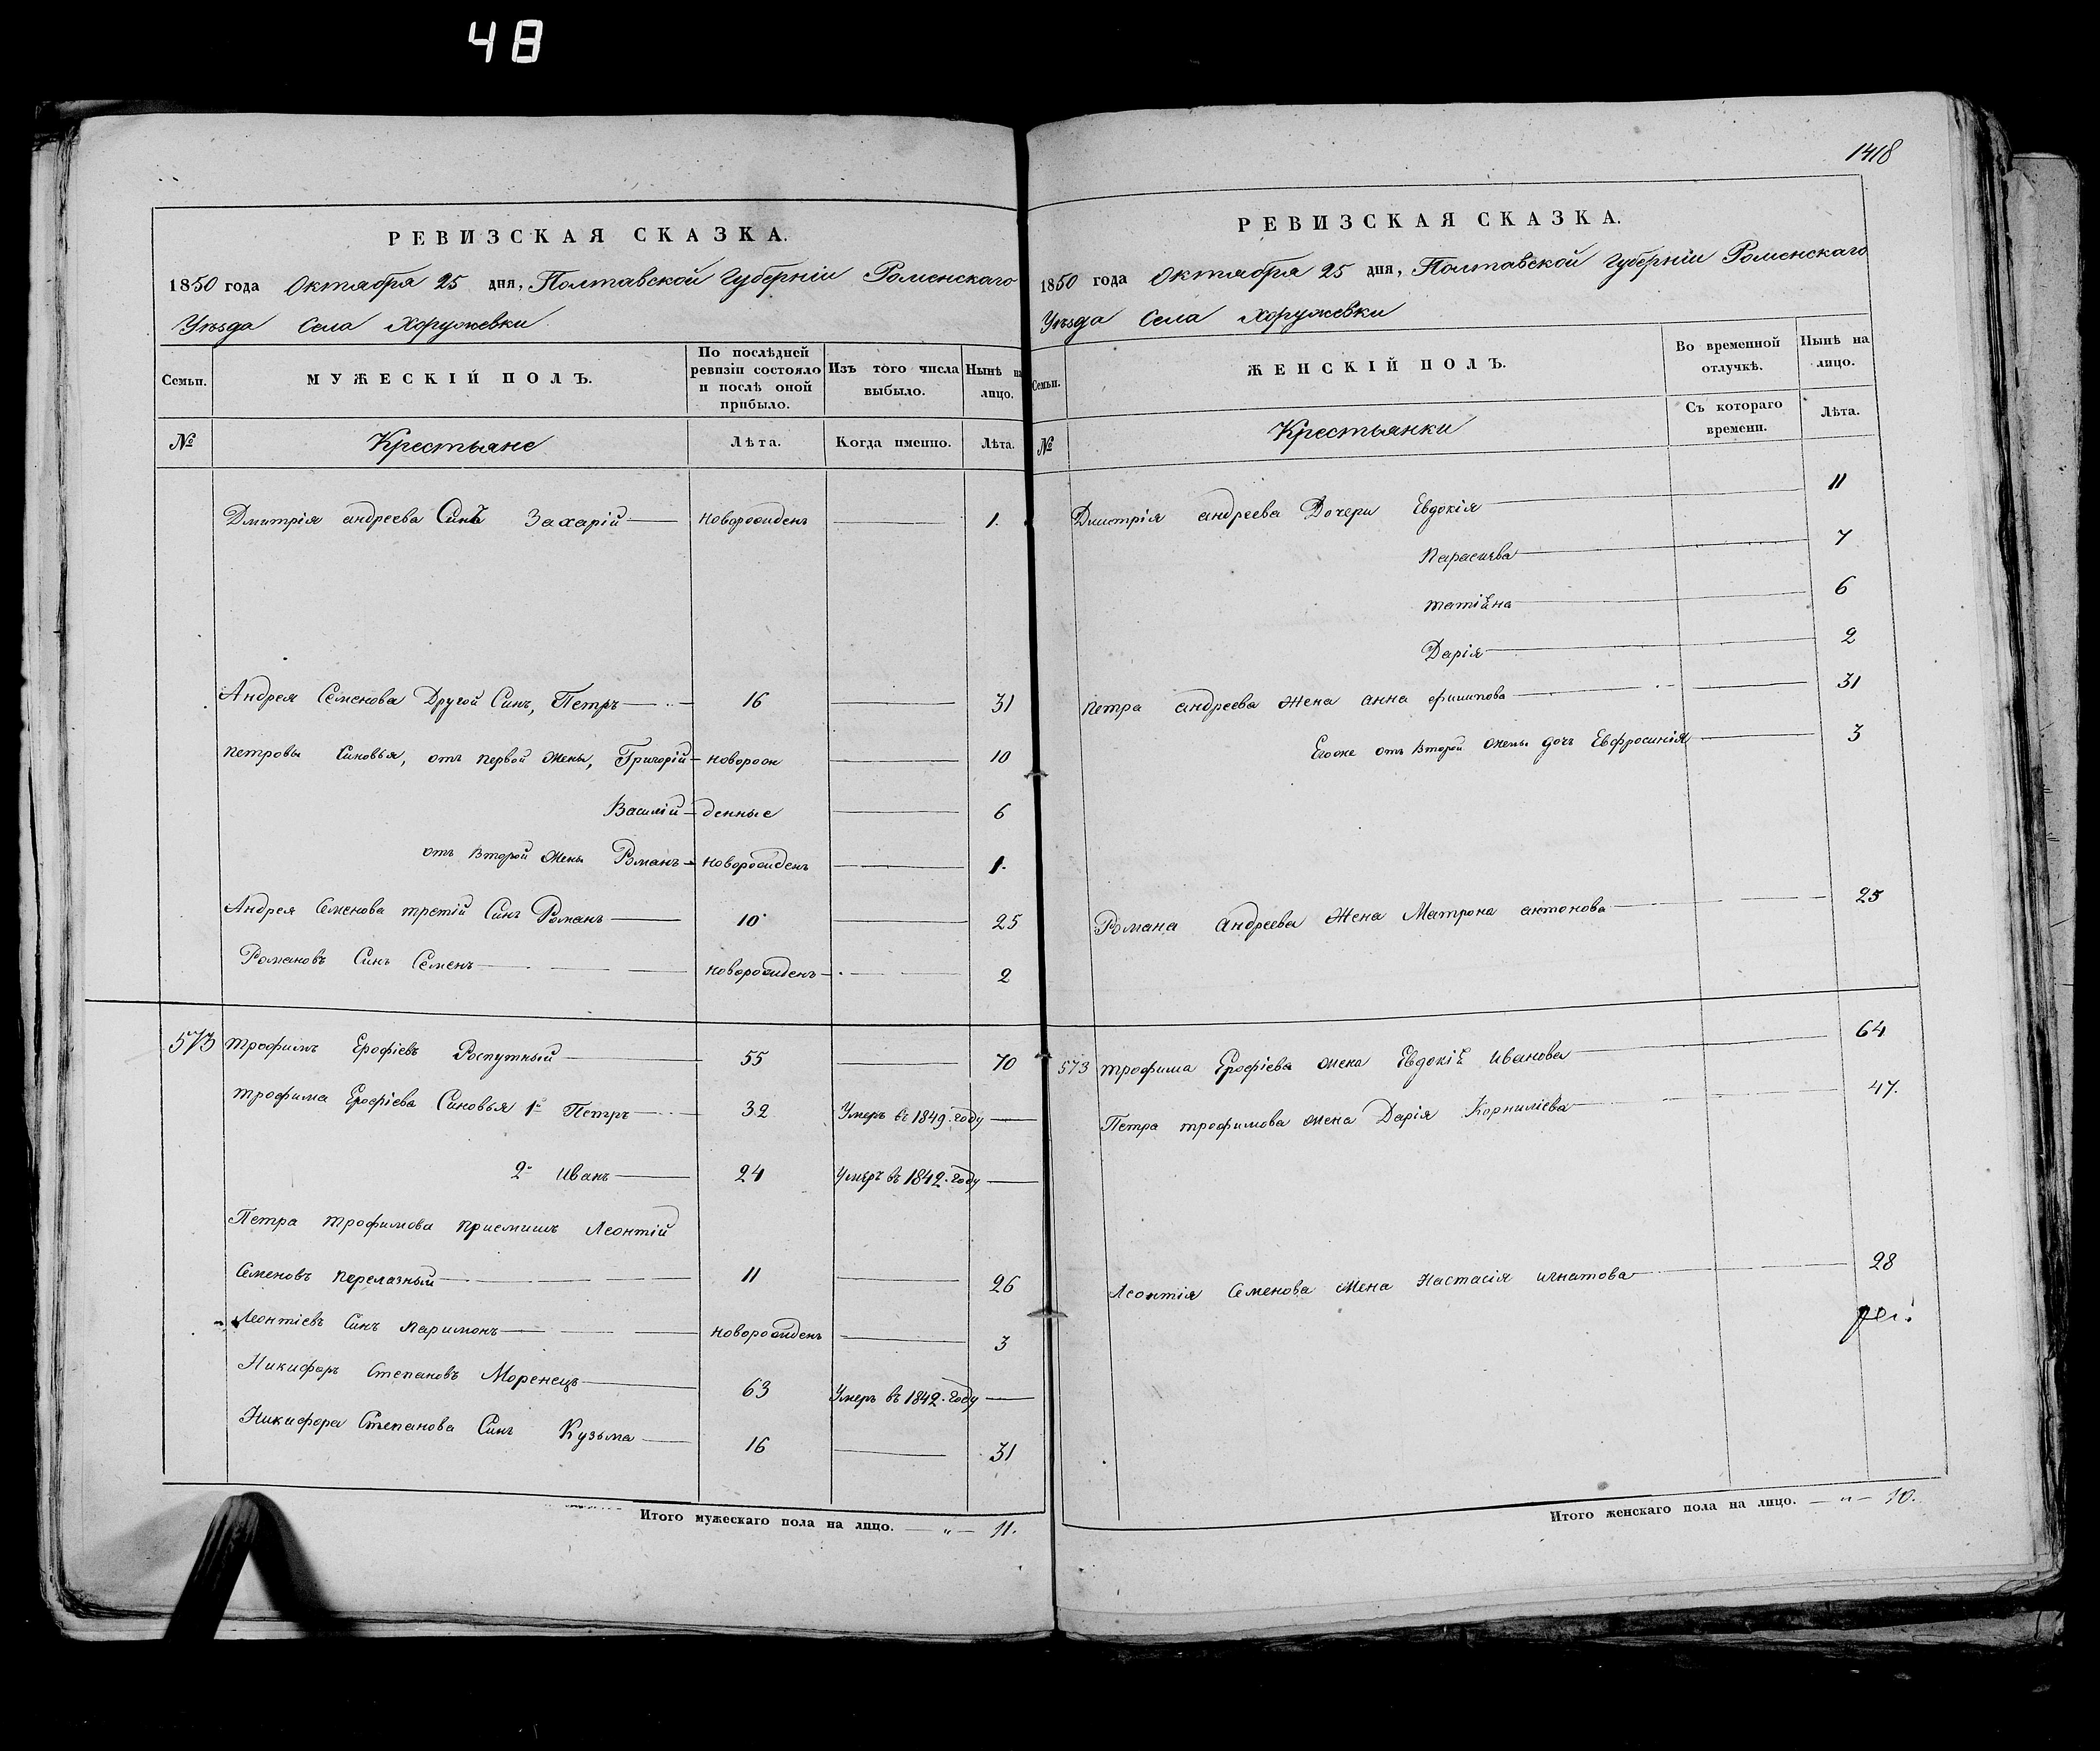 48
1418
РЕВИЗСКАЯ СКАЗКА.
1850 года Октября 25 дня, Полтавской Губерніи Роменскаго
Уѣзда Села Хоружевки
Семьи. МУЖЕСКІЙ ПОЛЪ. По послѣдней ревизіи состояло и послѣ оной прибыло. Изъ того числа выбыло. Нынѣ на лицо.
№ Крестьяне Лѣта. Когда именно. Лѣта.
Дмитрія андреева Синъ Захарій новорожденъ 1.
Андрея Семенова Другой Синъ, Петръ 16 31
петровы Синовья, отъ первой жены, Григорій новорож 10
Василій денные 6
отъ Второй жены Романъ новорожденъ 1.
Андрея Семенова третій Синъ Романъ 10 25
Романовъ Синъ Семенъ новорожденъ 2
573 трофимъ Ерофіевъ Роспутный 55 70
трофима Ерофіева Синовья 1й Петръ 32 Умеръ въ 1849. году
2й иванъ 24 Умеръ въ 1842. году
Петра трофимова приемишъ Леонтій
Семеновъ перелазный 11 26
Леонтіевъ Синъ паримонъ новорожденъ 3
Никифоръ Степановъ Моренецъ 63 Умеръ въ 1842. году
Никифора Степанова Синъ Кузьма 16 31
Итого мужескаго пола на лицо. — „ — 11.
РЕВИЗСКАЯ СКАЗКА.
1850 года Октября 25 дня, Полтавской Губерніи Роменскаго
Уѣзда Села Хоружевки
Семьи. ЖЕНСКІЙ ПОЛЪ. Во временной отлучкѣ. Нынѣ на лицо.
№ Крестьянки Съ котораго времени. Лѣта.
Дмитрія андреева Дочери Евдокія 11
Параскева 7
татіяна 6
Дарія 2
петра андреева жена анна филипова 31
Егоже отъ Второй жены дочъ Евфросинія 3
Романа андреева жена Матрона антонова 25
573 трофима Ерофіева жена Евдокія иванова 64
Петра трофимова жена Дарія Корниліева 47.
Леонтія Семенова жена Настасія игнатова 28
Итого женскаго пола на лицо. — „ — 10.